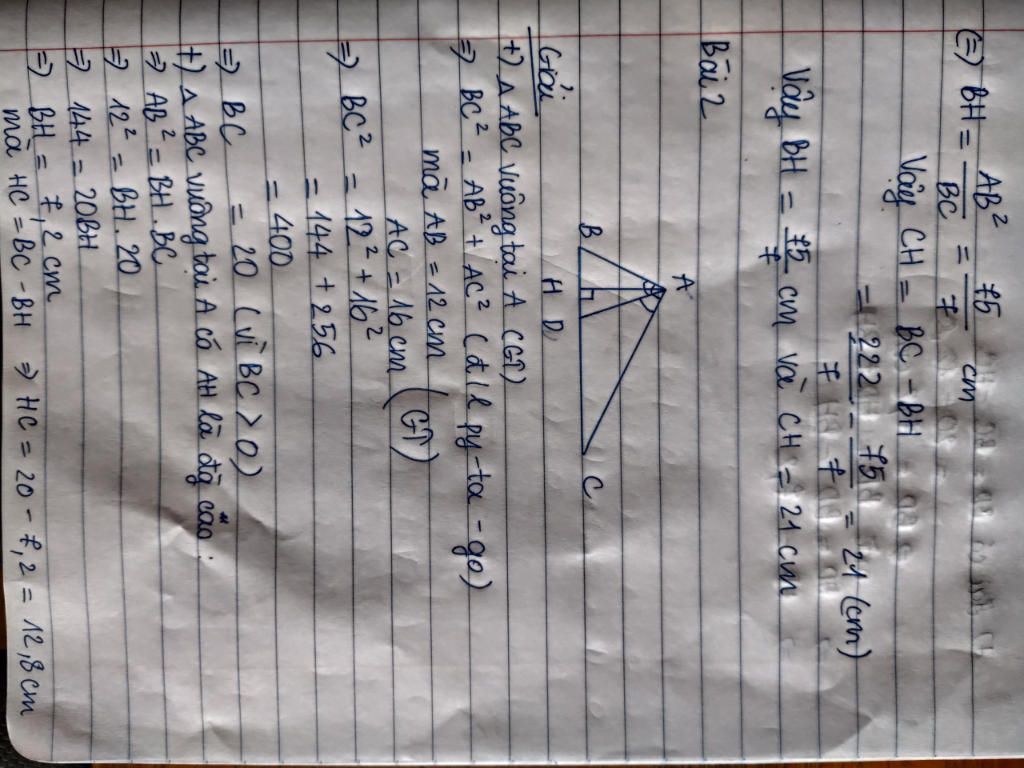 (=) BH = AB²/BC = 75/7 cm
Vậy CH = BC - BH
= 222/7 - 75/7 = 21 (cm)
Vậy BH = 75/7 cm và CH = 21 cm
Bài 2
A
B H D C
Giải
+) △ ABC vuông tại A (GT)
=) BC² = AB² + AC² (đ/l py-ta-go)
mà AB = 12 cm
AC = 16 cm (GT)
=) BC² = 12² + 16²
= 144 + 256
= 400
=) BC = 20 (vì BC > 0)
+) △ ABC vuông tại A có AH là đg cao:
=) AB² = BH.BC
=) 12² = BH.20
=) 144 = 20BH
=) BH = 7,2 cm
mà HC = BC - BH => HC = 20 - 7,2 = 12,8 cm